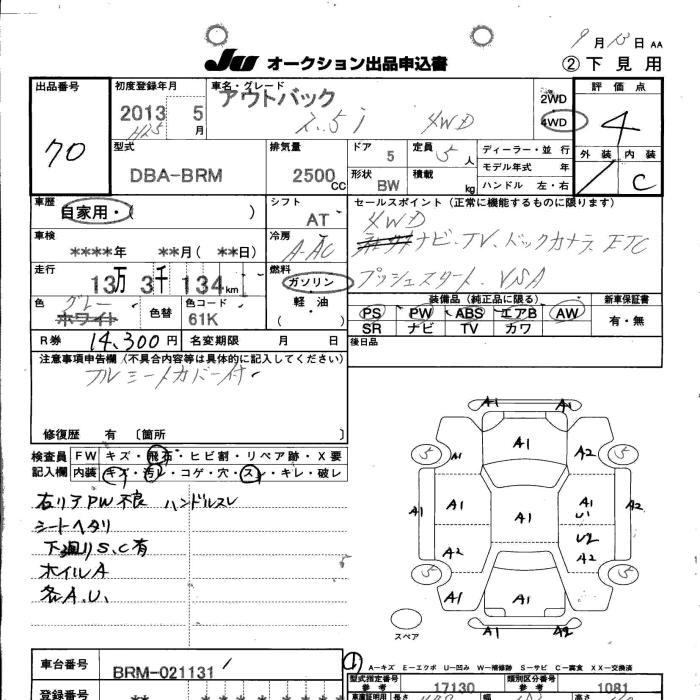 9月13日 AA
JU オークション出品申込書
② 下見用
出品番号
70
初度登録年月
2013 5
H25 月
車名・グレード
アウトバック
2.5i 4WD
2WD
4WD
評価点
4
外装 内装
C
型式
DBA-BRM
排気量
2500CC
ドア
5
定員
5人
形状
BW
積載
kg
ディーラー・並行
モデル年式 年
ハンドル 左・右
車歴
自家用・( )
シフト
AT
セールスポイント (正常に機能するものに限ります)
4WD
ナビ、TV、バックカメラ、ETC
プッシュスタート、VSA
車検
****年 **月( **日)
冷房
A-AC
走行
13万 3千 134km
燃料
ガソリン
軽・油
( )
色
グレー
ホワイト
色替
色コード
61K
装備品 (純正品に限る)
PS PW ABS エアB AW
SR ナビ TV カワ
新車保証書
有・無
R券 14,300円 名変期限 月 日
後日品
注意事項申告欄 (不具合内容等は具体的に記入してください)
フルシートカバー付
修復歴 有 〔箇所 〕
検査員 FW キズ・飛石・ヒビ割・リペア跡・X要
記入欄 内装 キズ・汚レ・コゲ・穴・スレ・キレ・破レ
右リアPW不良 ハンドルスレ
シートヘタリ
下廻りS、C有
ホイルA
各A、U、
A1 A1
A1
5 A1 A2 5
A1 A1 A1 A1 U1 A2
U2
A2 A2
5 5
A1 A1 A1
スペア
A1 A2
A-キズ E-エクボ U-凹み W-補修跡 S-サビ C-腐食 XX-交換済
車台番号
BRM-021131
型式指定番号
参考
17130
類別区分番号
参考
1081
登録番号